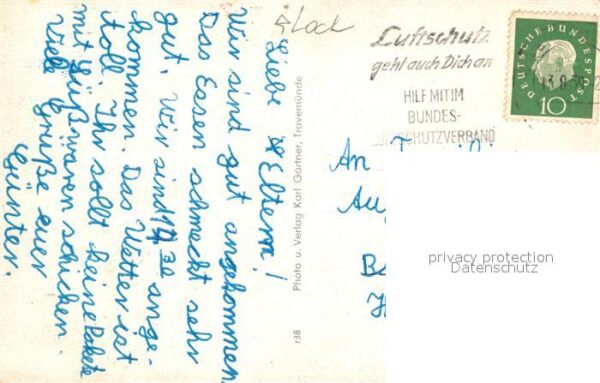 Liebe Eltern!
Wir sind gut angekommen.
Das Essen schmeckt sehr
gut. Wir sind 17 30 ange-
kommen. Das Wetter ist
toll. Ihr sollt keine Pakete
mit Süßwaren schicken.
Viele Grüße euer
Günter.
Photo u. Verlag Karl Gärtner, Travemünde
r38
Luftschutz
geht auch Dich an
HILF MIT IM
BUNDES-
LUFTSCHUTZVERBAND
DEUTSCHE BUNDESPOST
10
13.8.59
An
privacy protection
Datenschutz